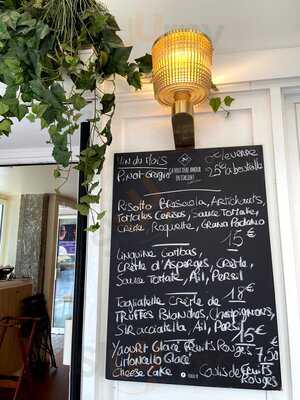 Vin du Mois
Pinot Grigio 25€ la bouteille
Risotto Bresaola, Artichauts,
Tomates Cerises, Sauce Tomate,
Crème, Roquette, Grana Padano
15€
Linguine Gambas,
Crème d'Asperges, Crème,
Sauce Tomate, Ail, Persil
18€
Tagliatelle Crème de
Truffes Blanches, Champignons,
Stracciatella, Ail, Persil
15€
Yaourt Glacé Fruits Rouges 7,50€
Limoncello Glacé
Cheese Cake Coulis de Fruits
Rouges